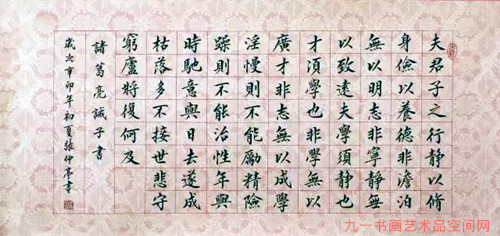 夫君子之行静以脩
身儉以養德非澹泊
無以明志非寧静無
以致遠夫學須静也
才須學也非學無以
廣才非志無以成學
淫慢則不能勵精險
躁則不能治性年與
時馳意與日去遂成
枯落多不接世悲守
窮廬將復何及
諸葛亮誡子書
歲次辛卯年初夏張仲亭書
九一书画艺术品空间网